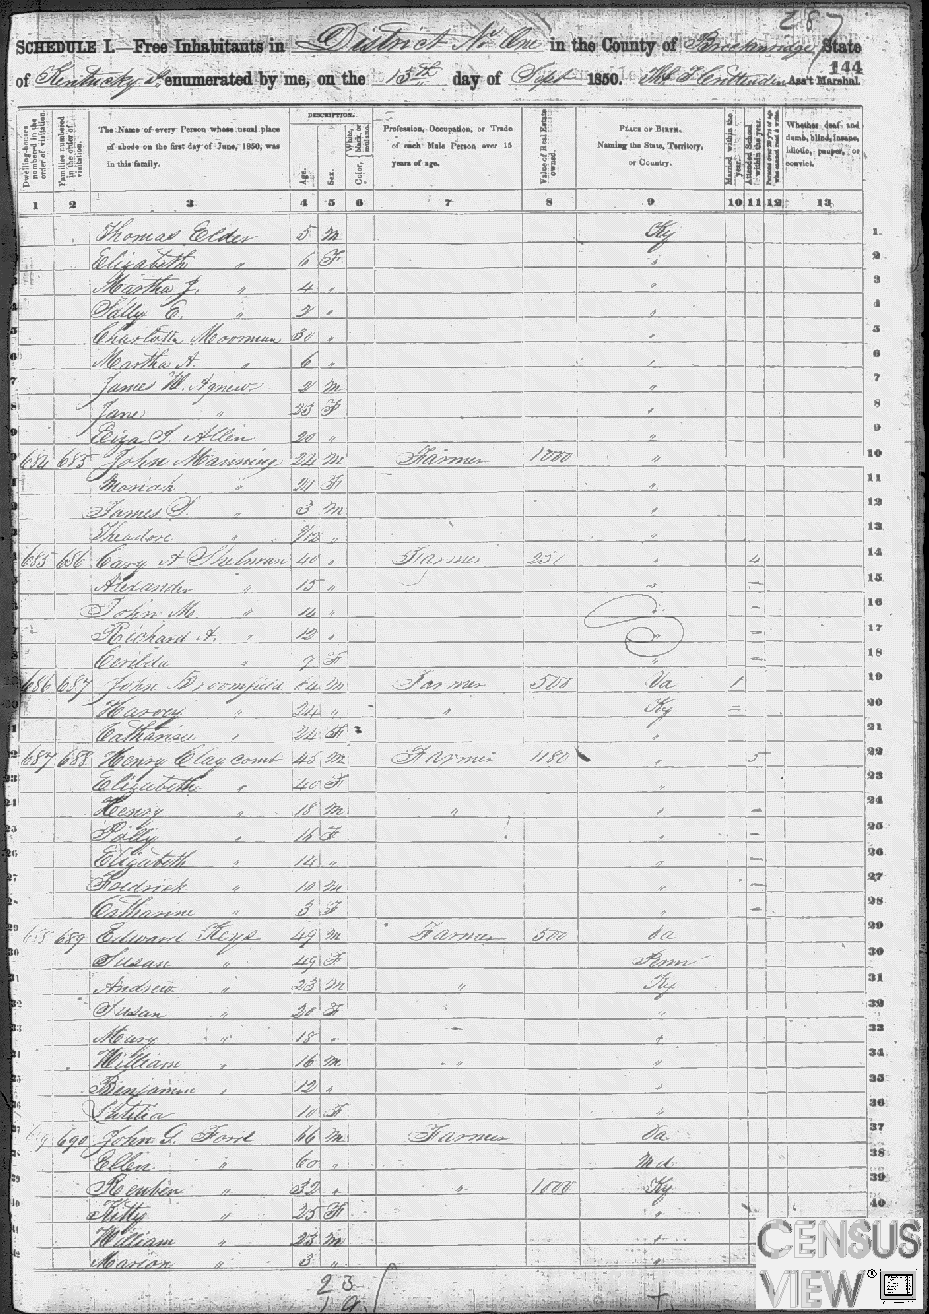 287
SCHEDULE I.—Free Inhabitants in District No One in the County of Breckinridge State
of Kentucky enumerated by me, on the 13th day of Sept 1850. Crittenden Ass't Marshal.
144
Dwelling-houses numbered in the order of visitation.
Families numbered in the order of visitation.
The Name of every Person whose usual place of abode on the first day of June, 1850, was in this family.
DESCRIPTION.
Age.
Sex.
Color, White, black, or mulatto.
Profession, Occupation, or Trade of each Male Person over 15 years of age.
Value of Real Estate owned.
PLACE OF BIRTH. Naming the State, Territory, or Country.
Married within the year.
Attended School within the year.
Persons over 20 y'rs of age who cannot read & write.
Whether deaf and dumb, blind, insane, idiotic, pauper, or convict.
1 2 3 4 5 6 7 8 9 10 11 12 13
Thomas Elder 5 M Ky 1
Elizabeth " 6 F " 2
Martha J. " 4 " " 3
Sally E. " 2 " " 4
Charlotte Moorman 30 " " 5
Martha A. " 6 " " 6
James W. Agnew 2 M " 7
Jane " 23 F " 8
Eliza J. Allen 20 " " 9
684 685 John Manning 24 M Farmer 1000 " 10
Moriah " 21 F " 11
James T. " 3 M " 12
Theodore " 9/12 " 13
685 686 Cary A Shelman 40 " Farmer 250 " 4 14
Alexander " 15 " " – 15
John M. " 14 " " – 16
Richard A. " 12 " " – 17
Cerilda " 9 F " – 18
686 687 John Broomfield 54 M Farmer 500 Va 1 19
Harvey " 24 " " Ky – 20
Catharine " 24 F " 21
687 688 Henry Claycomb 45 M Farmer 1180 " 5 22
Elizabeth " 40 F " 23
Henry " 18 M " " – 24
Polly " 16 F " – 25
Elizabeth " 14 " " – 26
Fredrick " 10 M " – 27
Catharine " 3 F " – 28
688 689 Edward Keys 49 M Farmer 500 Va 29
Susan " 49 F Penn 30
Andrew " 23 M " Ky 31
Susan " 20 F 32
Mary " 18 " " 33
William " 16 M " " 34
Benjamin " 12 " " 35
Lutitia 10 F " 36
689 690 John G. Ford 66 M Farmer Va 37
Ellen " 60 " Md 38
Reuben " 32 " " 1000 Ky 39
Kitty " 25 F " 40
William " 23 M "
Marion " 3 " "
23
19
CENSUS
VIEW®